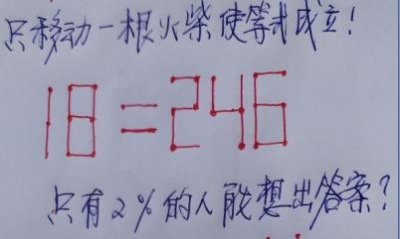 只移动一根火柴使等式成立！
18=246
只有2%的人能想出答案？